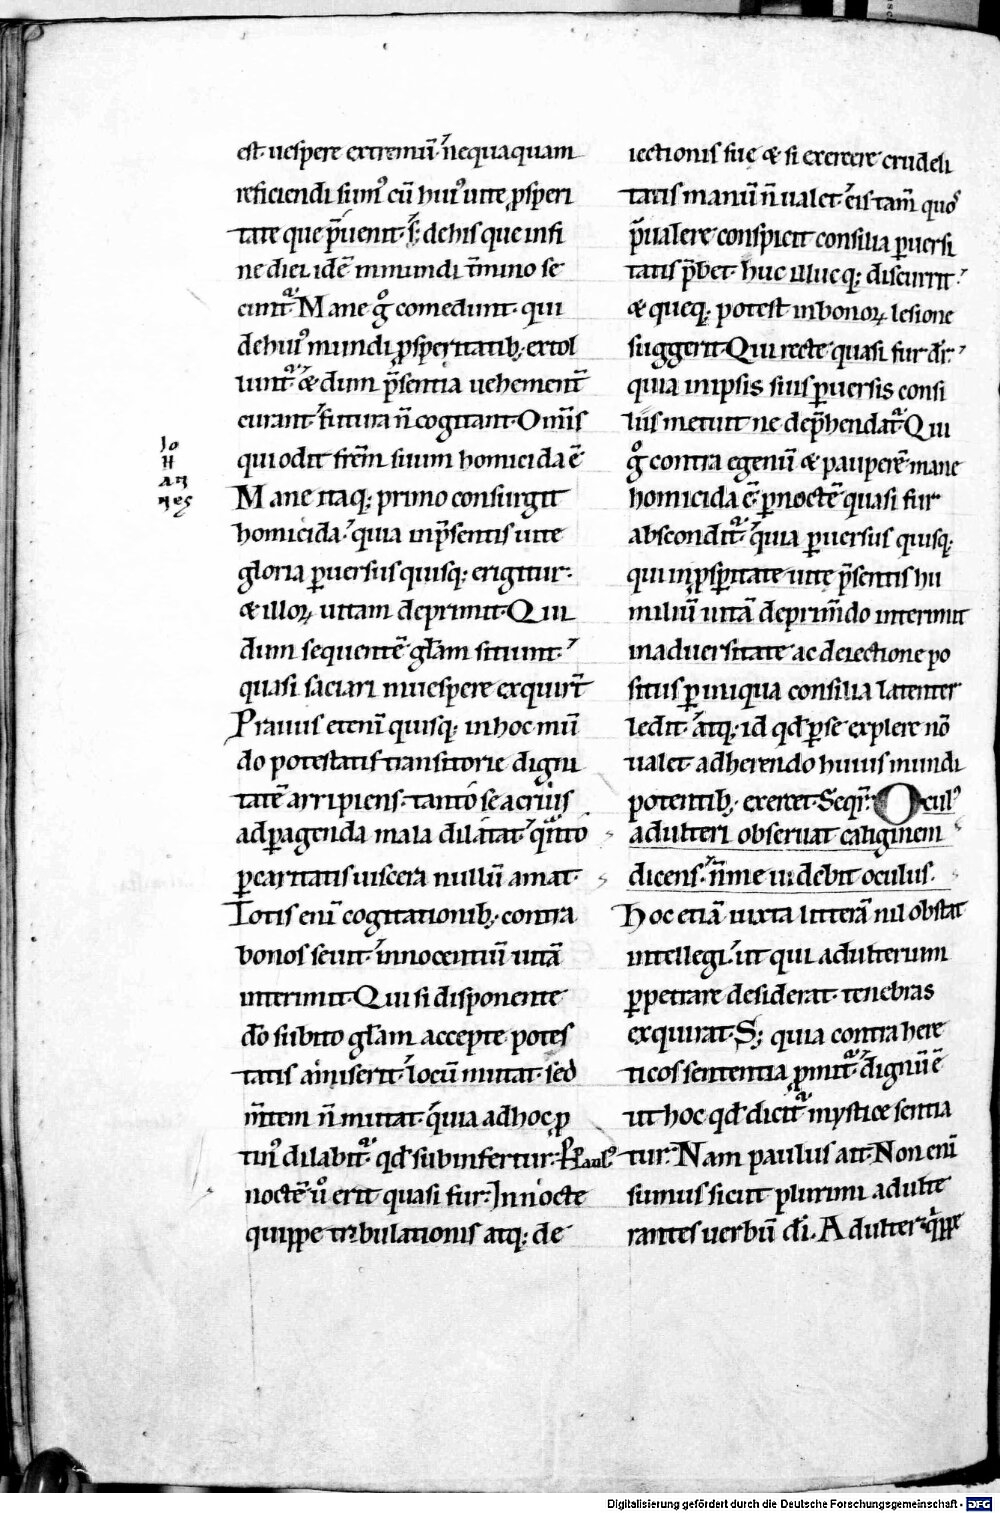 est· uespere extremū· n̄equaquam
reficiendi sum᷒ cū hui᷒ uite ꝓsperi
tate que p̄uenit· s; de his que in fi
ne diei idē in mundi t̄mino se
cunt᷑· Mane g̊ comedunt· qui
de hui᷒ mundi ꝓsperitatib; extol
lunt᷑· & dum p̄sentia uehement̄
curant· futura n̄ cogitant· Omīs
qui odit frēm suum homicida ē
Johannes
Mane itaq; primo consurgit
homicida· quia in p̄sentis uite
gloria ꝑuersus quisq; erigitur·
& illoꝝ uitam deprimit· Qui
dum sequentē gl̄am sitiunt·
quasi saciari in uespere exquir̄t
Prauus etenī quisq; in hoc mū
do potestatis transitorie digni
tatē arripiens· tanto se acrius
ad ꝑagenda mala dilatat· qnto
ꝑ caritatis uiscera nullū amat·
Totis enī cogitationib; contra
bonos seuit· innocentiū uitā
interimit· Qui si disponente
dō subito gl̄am accepte potes
tatis amiserit· locū mutat· sed
m̄tem n̄ mutat· quia ad hoc ꝓ
tin᷒ dilabit᷑· qd̄ subinfertur· Paul᷒
noctē ů erit quasi fur· In nocte
quippe tribulationis atq; de
iectionis sue & si exercere crudeli
tatis manū n̄ ualet· eis tam̄ quo᷒
p̄ualere conspicit consilia ꝑuersi
tatis p̄bet· huc illucq; discurrit·
& queq; potest in bonoꝝ lesione
suggerit· Qui recte quasi fur dr̄·
quia in ipsis suis ꝑuersis consi
liis metuit ne dep̄hendat᷑· Qui
g̊ contra egenū & pauperē mane
homicida ē· ꝑ noctē quasi fur
abscondit᷑· quia ꝑuersus quisq;
qui in ꝓsꝑitate uite p̄sentis hu
miliū uitā deprimēdo interimit
in aduersitate ac deiectione po
situs ꝑ iniqua consilia latenter
ledit· atq; id qd̄ ꝑ se explere nō
ualet· adherendo huius mundi
potentib; exercet· Seqr̄· Ocul᷒
adulteri obseruat caliginem
dicens· n̄ me uidebit oculus·
Hoc etiā iuxta litterā nil obstat
intellegi· ut qui adulterium
ꝑpetrare desiderat· tenebras
exquirat· S; quia contra here
ticos sententia ꝓmit᷑· dignū ē
ut hoc qd̄ dicit᷑ mystice sentia
tur· Nam paulus ait· Non enī
sumus sicut plurimi adulte
rantes uerbū dī. Adulter quippe